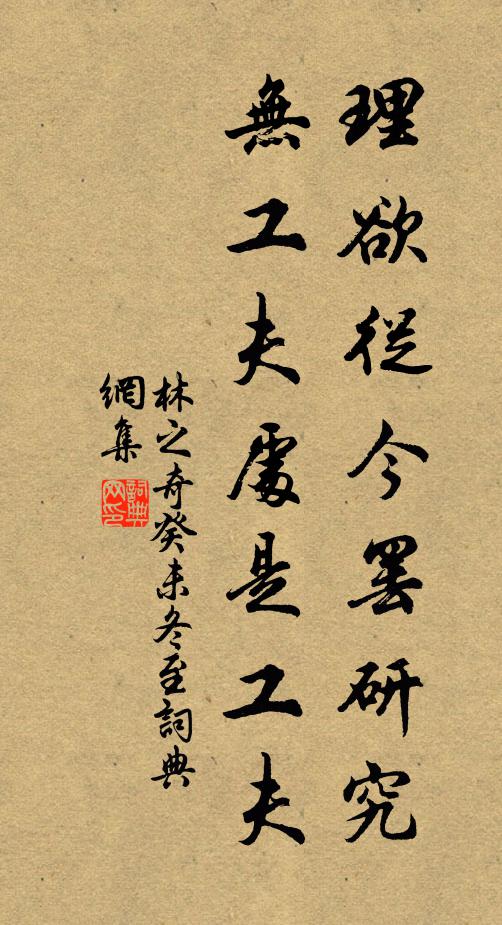 理欲從今罷研究
無工夫處是工夫
林之奇癸未冬至詞典
網集
詞典
网印